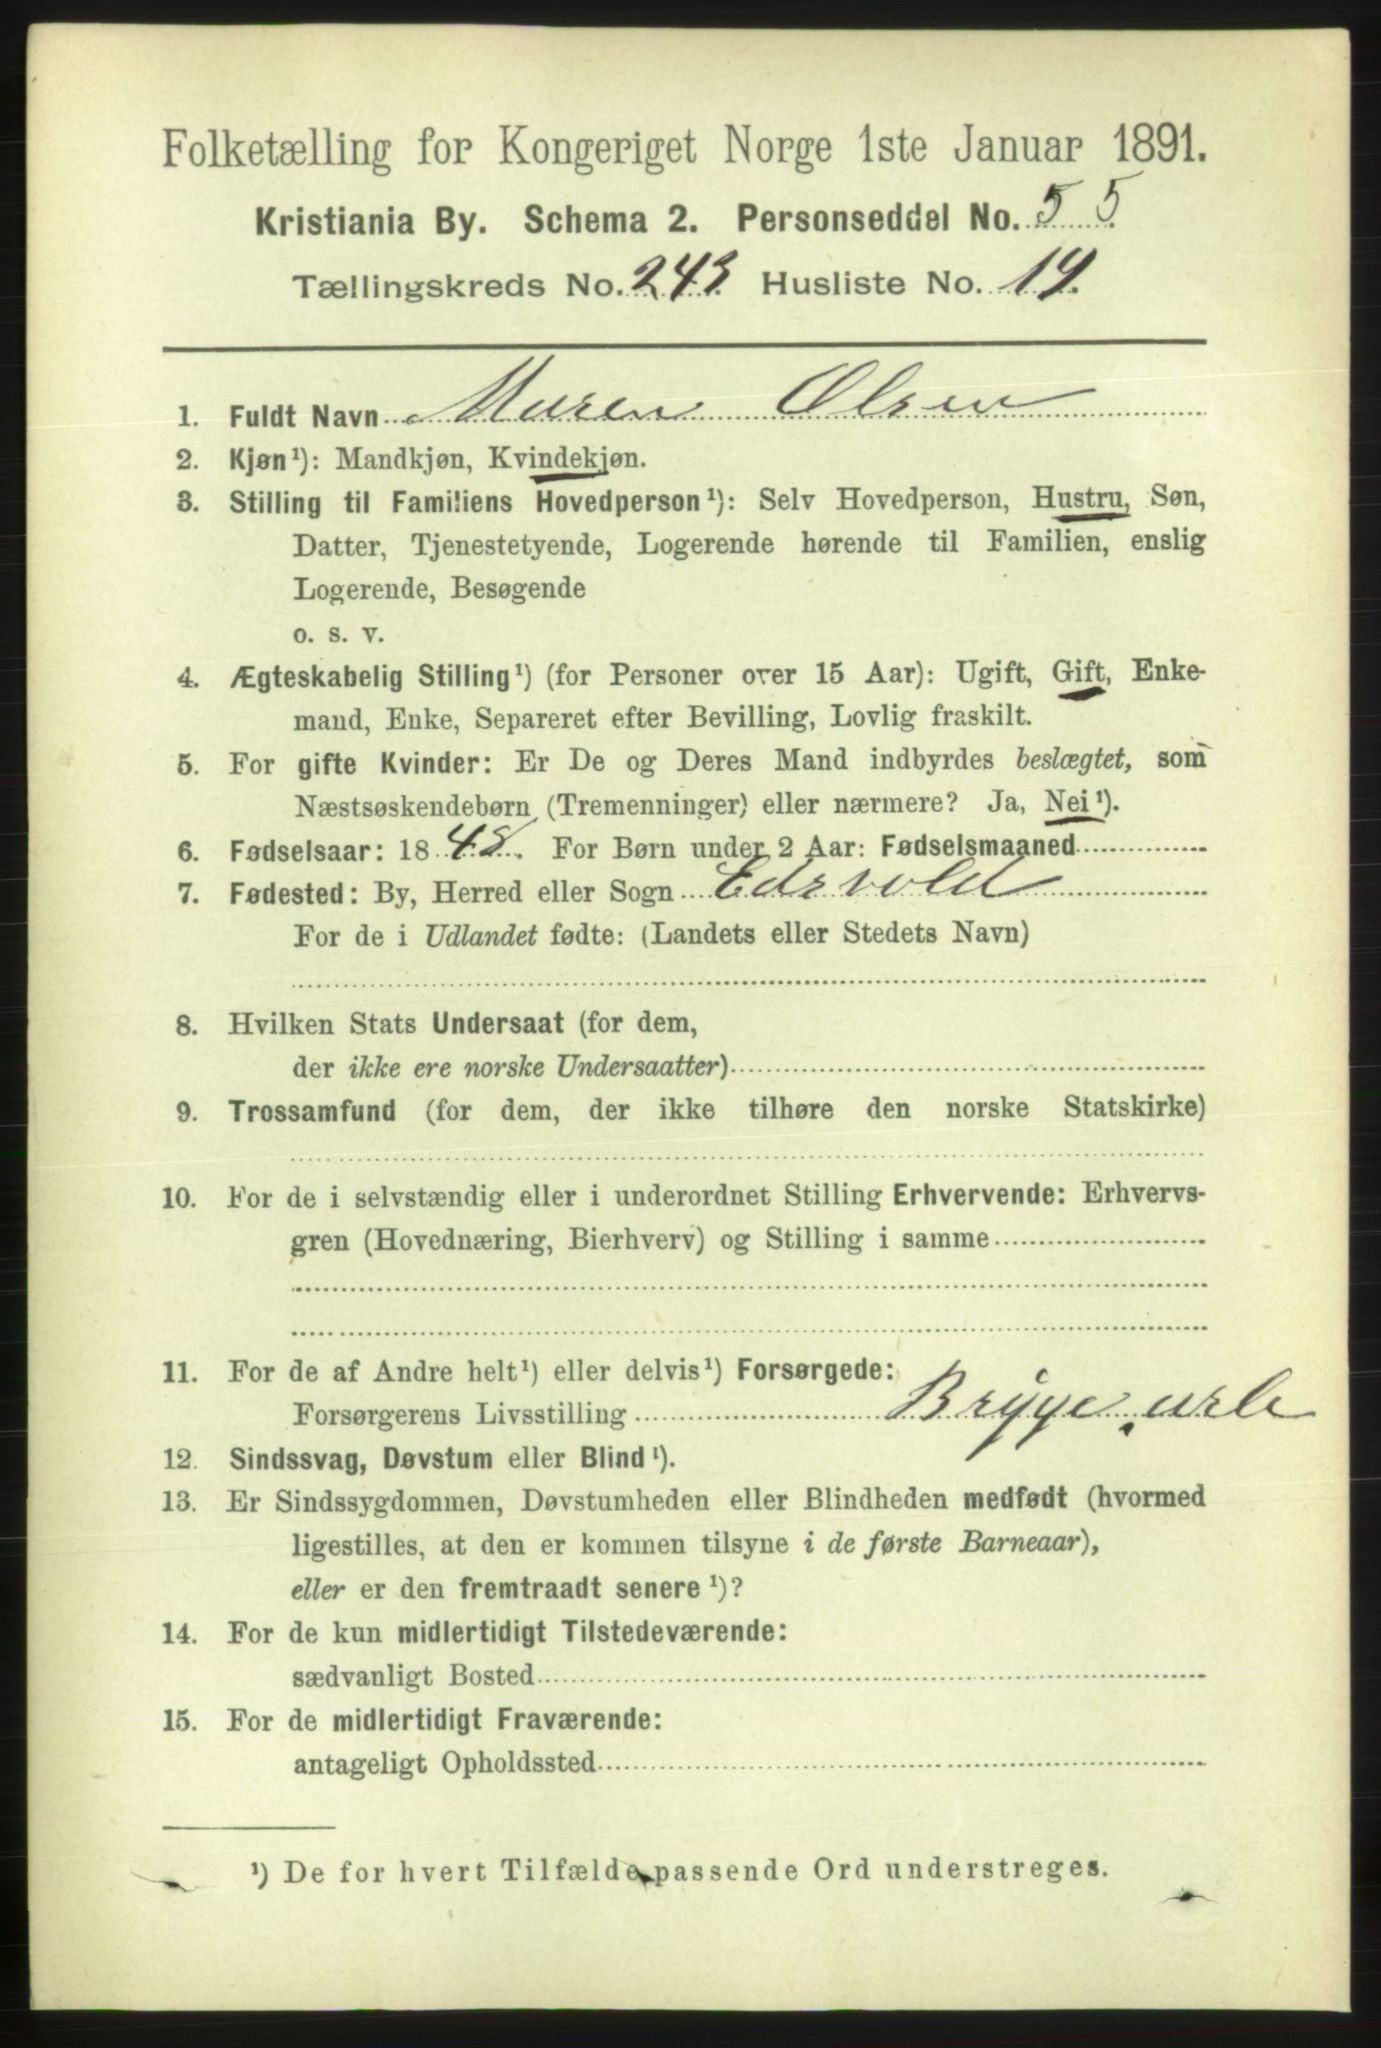 Folketælling for Kongeriget Norge 1ste Januar 1891.
Kristiania By. Schema 2. Personseddel No. 55
Tællingskreds No. 243 Husliste No. 14.
1. Fuldt Navn Maren Olsen
2. Kjøn¹): Mandkjøn, Kvindekjøn.
3. Stilling til Familiens Hovedperson¹): Selv Hovedperson, Hustru, Søn,
Datter, Tjenestetyende, Logerende hørende til Familien, enslig
Logerende, Besøgende
o. s. v.
4. Ægteskabelig Stilling¹) (for Personer over 15 Aar): Ugift, Gift, Enke-
mand, Enke, Separeret efter Bevilling, Lovlig fraskilt.
5. For gifte Kvinder: Er De og Deres Mand indbyrdes beslægtet, som
Næstsøskendebørn (Tremenninger) eller nærmere? Ja, Nei¹).
6. Fødselsaar: 1848. For Børn under 2 Aar: Fødselsmaaned
7. Fødested: By, Herred eller Sogn Edsvold
For de i Udlandet fødte: (Landets eller Stedets Navn)
8. Hvilken Stats Undersaat (for dem,
der ikke ere norske Undersaatter)
9. Trossamfund (for dem, der ikke tilhøre den norske Statskirke)
10. For de i selvstændig eller i underordnet Stilling Erhvervende: Erhvervs-
gren (Hovednæring, Bierhverv) og Stilling i samme
11. For de af Andre helt¹) eller delvis¹) Forsørgede:
Forsørgerens Livsstilling Bryge.arb
12. Sindssvag, Døvstum eller Blind¹).
13. Er Sindssygdommen, Døvstumheden eller Blindheden medfødt (hvormed
ligestilles, at den er kommen tilsyne i de første Barneaar),
eller er den fremtraadt senere¹)?
14. For de kun midlertidigt Tilstedeværende:
sædvanligt Bosted
15. For de midlertidigt Fraværende:
antageligt Opholdssted
¹) De for hvert Tilfælde passende Ord understreges.